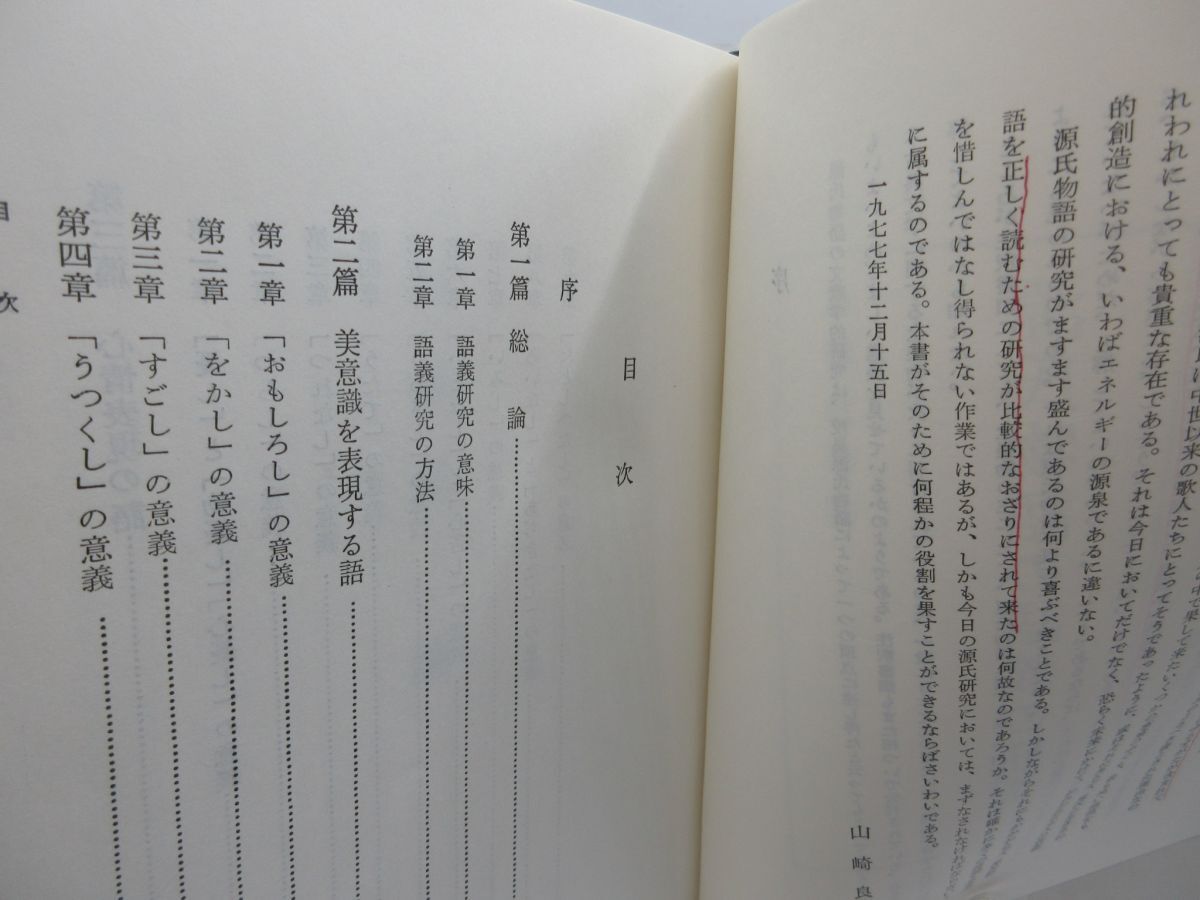 れわれにとっても貴重な存在である。それは今日においてだけでなく、恐らく
的創造における、いわばエネルギーの源泉であるに違いない。
源氏物語の研究がますます盛んであるのは何より喜ぶべきことである。しかしながら
語を正しく読むための研究が比較的なおざりにされて来たのは何故なのであろうか。それは確かに
を惜しんではなし得られない作業ではあるが、しかも今日の源氏研究においては、まずなされなければ
に属するのである。本書がそのために何程かの役割を果すことができるならばさいわいである。
一九七七年十二月十五日
山崎良
目次
序
第一篇 総論
第一章 語義研究の意味
第二章 語義研究の方法
第二篇 美意識を表現する語
第一章 「おもしろし」の意義
第二章 「をかし」の意義
第三章 「すごし」の意義
第四章 「うつくし」の意義
目次